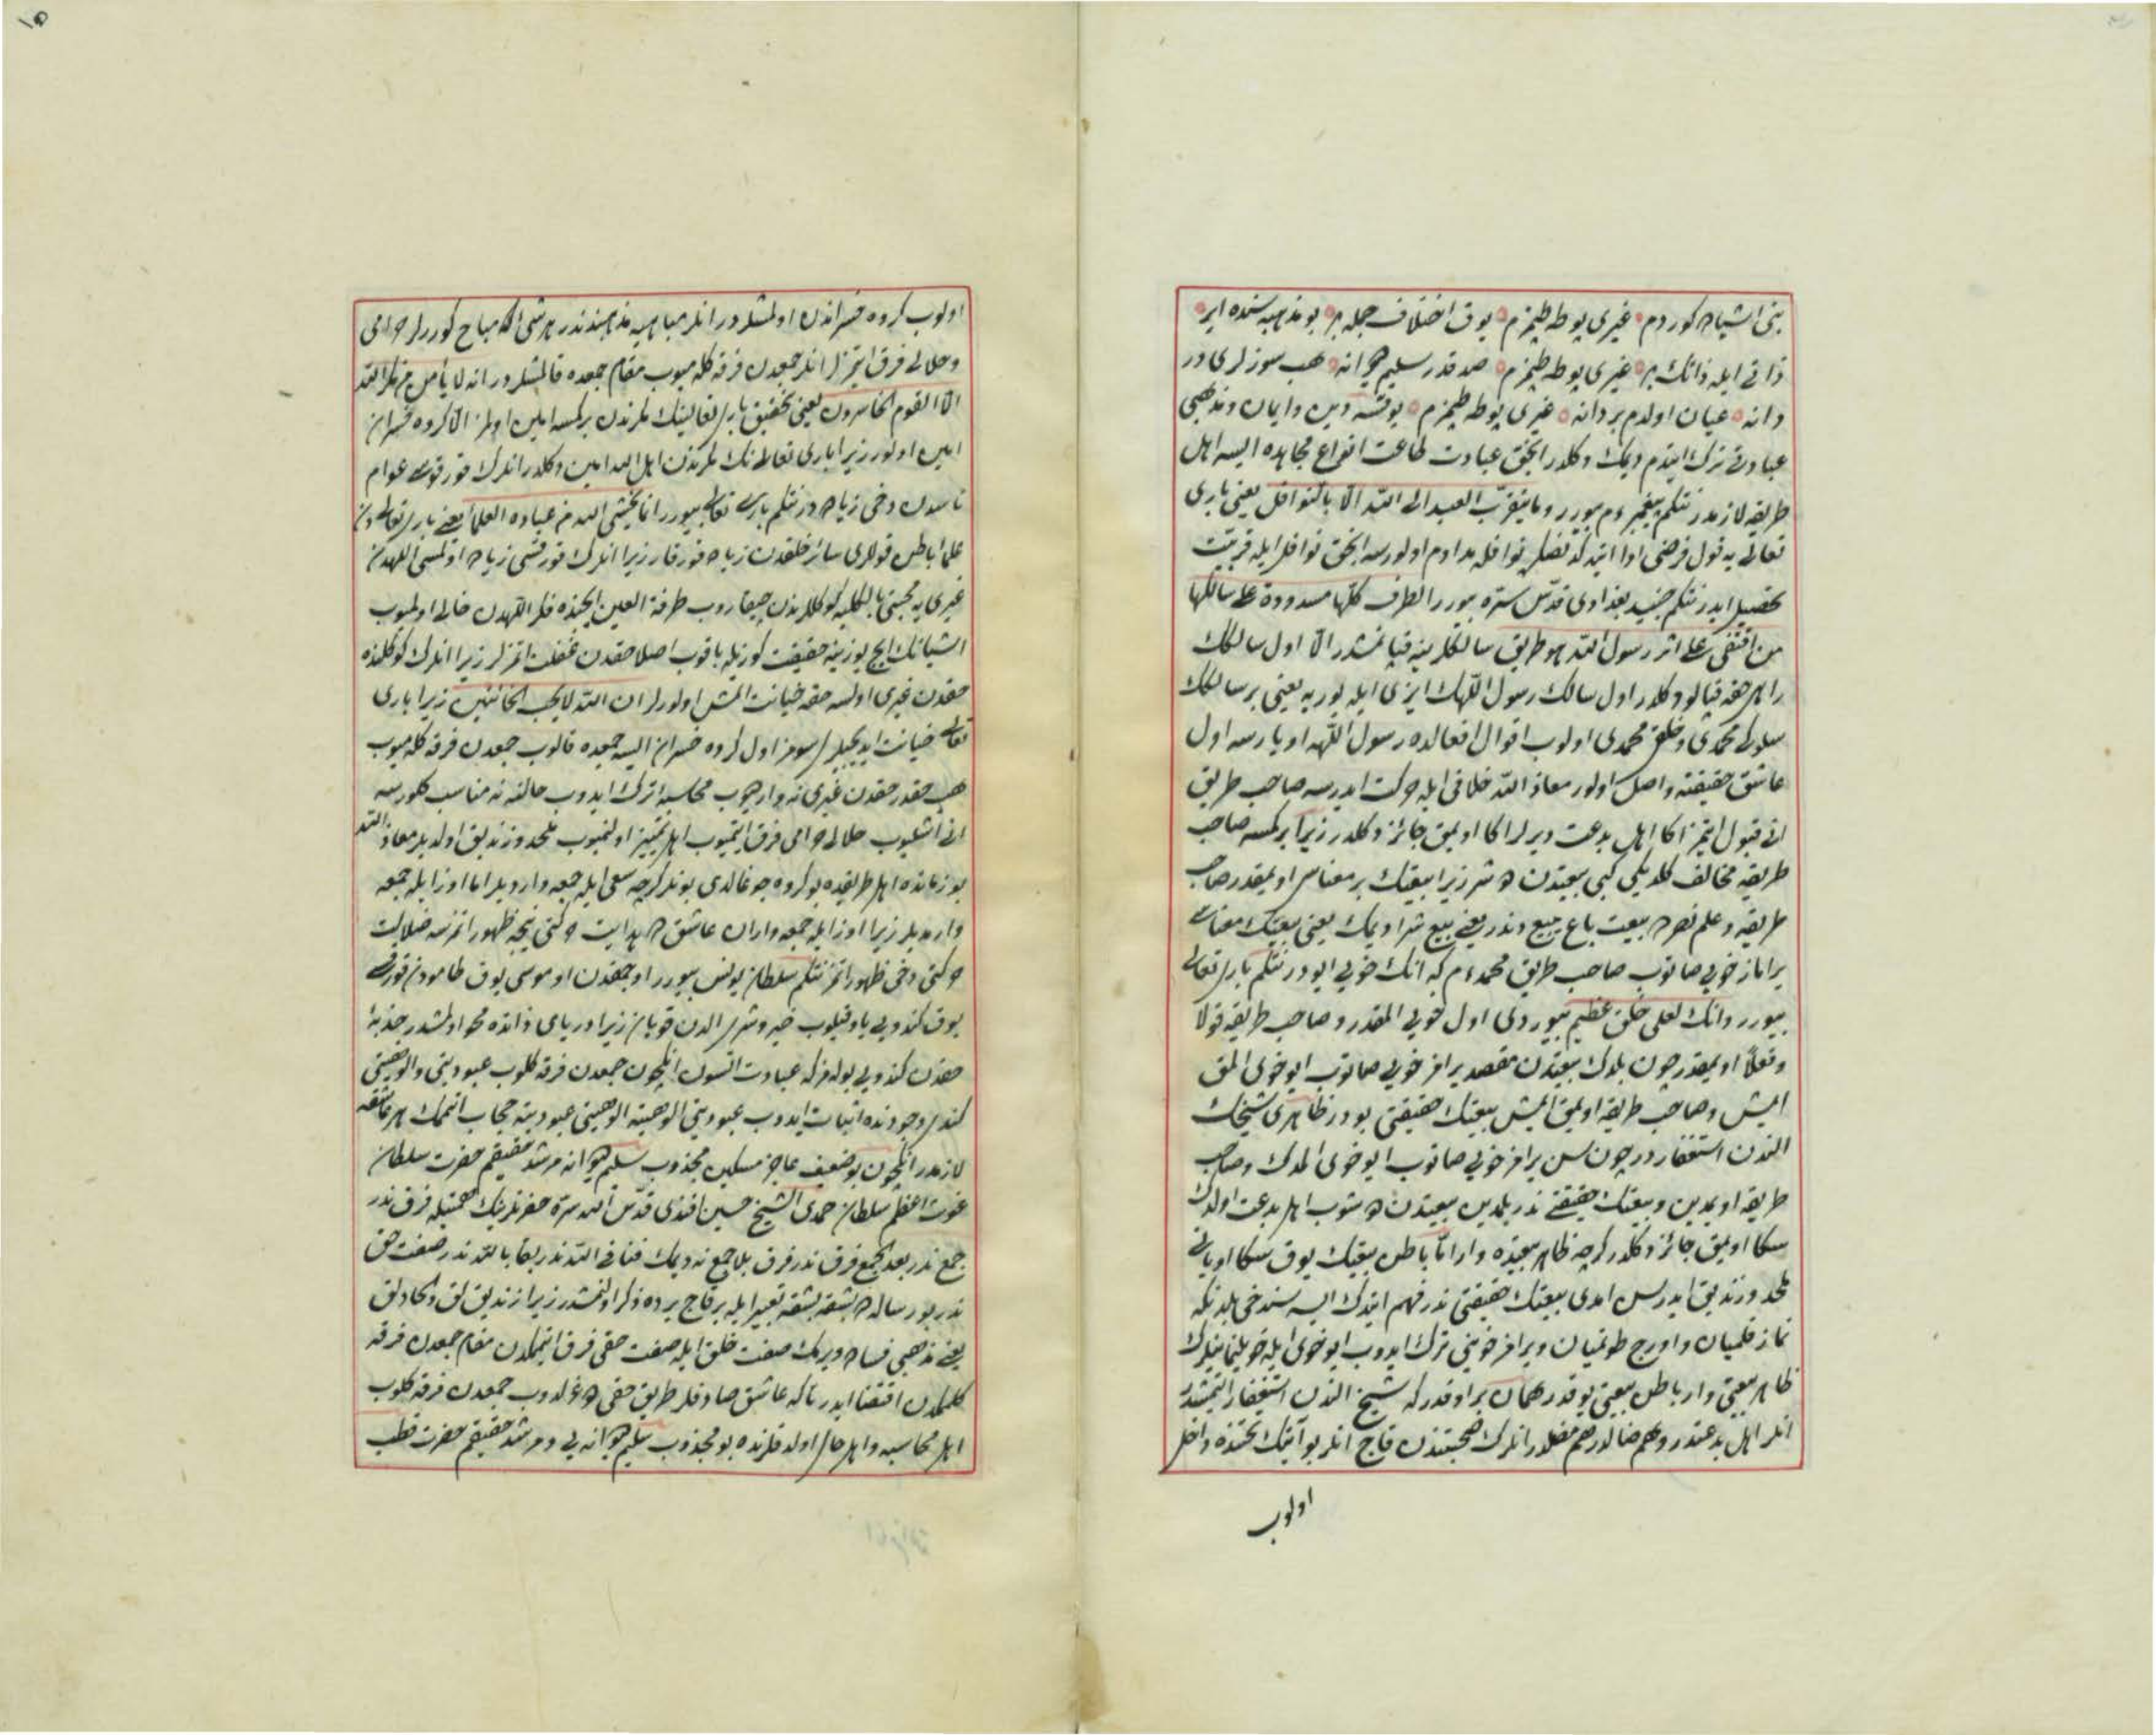 بنى اشيا ده كوردم غيرى يوطه طپمزم يوق اختلاف جمله بر بو مذهبه سنده اير
ذاتى ايله ذاتك بر غيرى يوطه طپمزم صد قدر سليم ديوانه هب سوزلرى در
دانه عيان اولدم بردانه غيرى يوطه طپمزم يوقسه دين وايمان ومذهبى
عبادتى ترك ايتدم ديمك دكلدر انجق عبادت طاعت انواع مجاهده ايسه اهل
طريقه لازمدر نتكم پيغمبر عم بيورر وما يتقرب العبد الى الله الا بالنوافل يعنى بارى
تعالى يه قول فرضى ادا ايتدكدنصكره نوافله مداوم اولورسه انجق نوافل ايله قربيت
تحصيل ايدر نتكم جنيد بغدادى قدس سره بيورر الطرق كلها مسدودة على سالكها
من اقتفى على اثر رسول الله هو طريق سالكلرينه قپانمشدر الا اول سالكك
راهى حقه قپالو دكلدر اول سالك رسول اللهك ايزى ايله يوريه يعنى بر سالكك
سلوكى محمدى وخلق محمدى اولوب اقوال افعالده رسول اللهه اويارسه اول
عاشق حقيقته واصل اولور معاذ الله خلافى ايله حركت ايدرسه صاحب طريق
انى قبول ايتمز اكا اهل بدعت ديرلر اكا اويمق جائز دكلدر زيرا بر كمسه صاحب
طريقه مخالف كلديكى كبى بيعتدن دوشر زيرا بيعتك بر معناسى اويمقدر صاحب
طريقه وعلم نصره بيعت باع يبيع دندر يعنى بيع شرا ديمك يعنى بيعتك معناسى
براماز خويى صاتوب صاحب طريق محمد عم كه انك خويى ايودر نتكم بارى تعالى
بيورر وانك لعلى خلق عظيم بيوردى اول خويى المقدر وصاحب طريقه قولا
وفعلا اويمقدر چون بلدك بيعتدن مقصد يرامز خويى صاتوب ايو خوى المق
ايمش وصاحب طريقه اويمق ايمش بيعتك حقيقتى بودر ظاهرى شيخك
الندن استغفاردر چون سن يرامز خويى صاتوب ايو خوى المدك وصاحب
طريقه اويمدين وبيعتك حقيقتى ندر بلمدين بيعتدن دوشوب اهل بدعت اولدك
سكا اويمق جائز دكلدر كرچه ظاهر بيعتده وار اما باطن بيعتك يوق سكا اويانى
ملحد وزنديق ايدرسن امدى بيعتك حقيقتى ندر فهم ايتدك ايسه سندخى بلدنكه
نماز قلميان واورج طوتميان ويرامز خوينى ترك ايدوب ايو خوى ايله خويلنمينلرك
ظاهر بيعتى وار باطن بيعتى يوقدر همان بر اوقدركه شيخ الندن استغفار ايتمشدر
انلر اهل بدعتدر وهم ضالدر هم مضلدر انلرك صحبتندن قاچ انلر بو آيتك تحتنده داخل
اولوب
اولوب كروه خسراندن اولمشلردر انلر مباحيه مذهبندندر هر شى اكا مباح كوررلر حرامى
وحلالى فرق ايتمزلر انلر جمعدن فرقه كلميوب مقام جمعده قالمشلردر انه لا يأمن مكر الله
الا القوم الخاسرون يعنى تحقيق بارى تعالينك مكرندن بر كمسه امين اولمز الا كروه خسران
امين اولور زيرا بارى تعالى نك مكرندن اهل الله امين دكلدر انلرك قورقوسى عوام
ناسدن دخى زياده در نتكم بارى تعالى بيورر انما يخشى الله من عباده العلماء يعنى بارى تعالى دن
علماء باطن قوللرى سائر خلقدن زياده قورقار زيرا انلرك قورقسى زياده اولمسى اللهدن
غيرى يه محبتى بالكليه كوكللرندن چيقاروب طرفة العين ايچنده فكر اللهدن خالى اولميوب
اشيانك ايچ يوزينه حقيقت كوزيله باقوب اصلا حقدن غفلت اتمزلر زيرا انلرك كوكلنده
حقدن غيرى اولسه حقه خيانت اتمش اولورلر ان الله لا يحب الخائنين زيرا بارى
تعالى خيانت ايديجيلرى سومز اول كروه خسران ايسه جمعده قالوب جمعدن فرقه كلميوب
هب حقدر حقدن غيرى نه وار ديوب محاسبه ترك ايدوب حالنه نه مناسب كلورسه
انى اشليوب حلالى حرامى فرق ايتميوب اهل تمييز اولنميوب ملحد وزنديق اولديلر معاذ الله
بو زمانده اهل طريقده بو كروه چوغالدى بونلر كرچه سعى ايله جمعه وارديلر اما اوز ايله جمعه
وارمديلر زيرا اوز ايله جمعه واران عاشق ده هدايت حركتى نيجه ظهور اتمزسه ضلالت
حركتى دخى ظهور اتمز نتكم سلطان يونس بيورر اوچمقدن اوموسى يوق طامودن قورقو
يوق كندويى ياوى قيلوب خير وشرى الدن قويان زيرا درياى ذاتده محو اولمشدر جذبه
حقدن كندويى بولمزكه عبادت اتسون انكچون جمعدن فرقه كلوب عبوديتى والوهيتى
كندى وجودنده اثبات ايدوب عبوديتى الوهيته الوهيتى عبوديته حجاب اتممك هر عاشقه
لازمدر انكچون بو ضعيف عاجز مسكين مجذوب سليم ديوانه مرشد حقيقم حضرت سلطان
غوث اعظم سلطان حمدى الشيخ حسين افندى قدس الله سره حضرتلرينك همتيله فرق ندر
جمع ندر بعد الجمع فرق ندر فرق بلا جمع نه ديمك فنا فى الله ندر بقا بالله ندر صفت حق
ندر بو رساله ده بشقه بشقه تعبير ايله بر قاچ يرده ذكر اولنمشدر زيرا زنديق لق والحادلق
يعنى مذهبى فساده ويرمك صفت خلق ايله صفت حقى فرق ايتممكدن مقام جمعدن فرقه
كلممكدن اقتضا ايدر تاكه عاشق صادقلر طريق حقى دوغرلدوب جمعدن فرقه كلوب
اهل محاسبه واهل حال اولدقلرنده بو مجذوب سليم ديوانه يى ومرشد حقيقم حضرت قطب